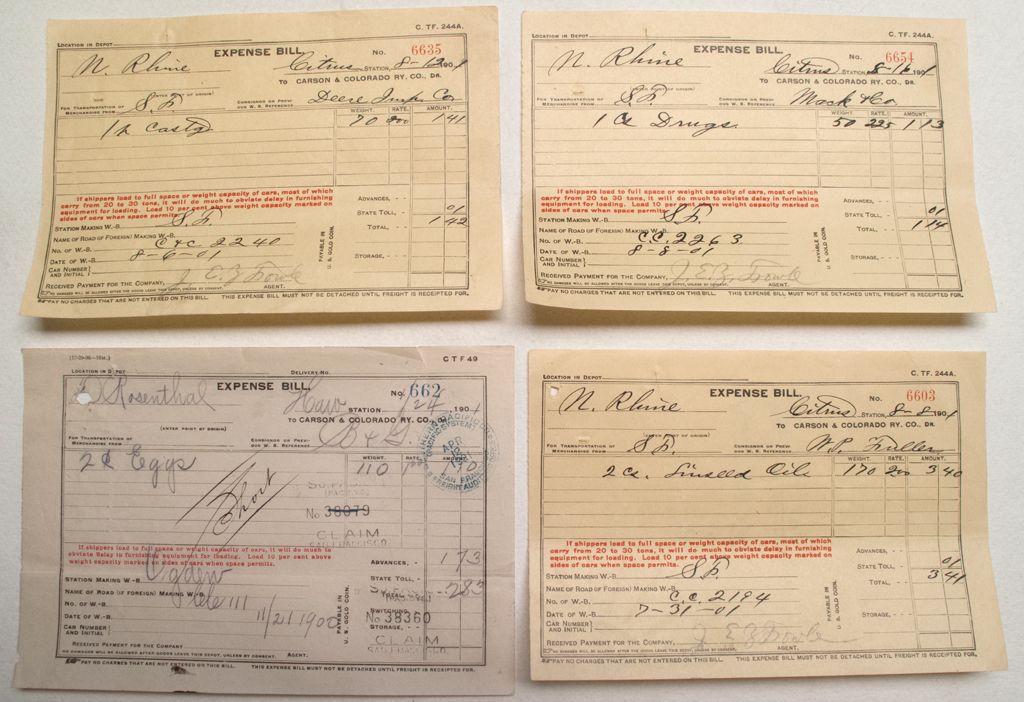 C. TF. 244A.
LOCATION IN DEPOT
EXPENSE BILL.
No. 6635
N. Rhine
Citrus STATION, 8-12 1901
TO CARSON & COLORADO RY. CO., DR.
(ENTER POINT OF ORIGIN)
FOR TRANSPORTATION OF MERCHANDISE FROM S.F. CONSIGNOR OR PREVIOUS W. B. REFERENCE. Deere Imp Co
WEIGHT. RATE. AMOUNT.
70 200 1 41
If shippers load to full space or weight capacity of cars, most of which
carry from 20 to 30 tons, it will do much to obviate delay in furnishing
equipment for loading. Load 10 per cent above weight capacity marked on
sides of cars when space permits.
ADVANCES,
STATE TOLL, 01
TOTAL, 1 42
STORAGE,
STATION MAKING W.-B. S.F.
NAME OF ROAD (IF FOREIGN) MAKING W.-B.
NO. OF W.-B. C&C 2240
DATE OF W.-B. 8-6-01
CAR NUMBER AND INITIAL
PAYABLE IN U. S. GOLD COIN.
RECEIVED PAYMENT FOR THE COMPANY, AGENT.
NO DAMAGES WILL BE ALLOWED AFTER THE GOODS LEAVE THIS DEPOT, UNLESS BY CONSENT.
PAY NO CHARGES THAT ARE NOT ENTERED ON THIS BILL. THIS EXPENSE BILL MUST NOT BE DETACHED UNTIL FREIGHT IS RECEIPTED FOR.
C. TF. 244A.
LOCATION IN DEPOT
EXPENSE BILL.
No. 6654
N. Rhine
Citrus STATION, 190
TO CARSON & COLORADO RY. CO., DR.
(ENTER POINT OF ORIGIN)
FOR TRANSPORTATION OF MERCHANDISE FROM S.F. CONSIGNOR OR PREVIOUS W. B. REFERENCE. Mack & Co.
WEIGHT. RATE. AMOUNT.
1 Cs Drugs 50 225 1 13
If shippers load to full space or weight capacity of cars, most of which
carry from 20 to 30 tons, it will do much to obviate delay in furnishing
equipment for loading. Load 10 per cent above weight capacity marked on
sides of cars when space permits.
ADVANCES,
STATE TOLL, 01
TOTAL, 1 14
STORAGE,
STATION MAKING W.-B. S.F.
NAME OF ROAD (IF FOREIGN) MAKING W.-B.
NO. OF W.-B. C.C. 2263
DATE OF W.-B. 8-8-01
CAR NUMBER AND INITIAL
PAYABLE IN U. S. GOLD COIN.
RECEIVED PAYMENT FOR THE COMPANY, AGENT.
NO DAMAGES WILL BE ALLOWED AFTER THE GOODS LEAVE THIS DEPOT, UNLESS BY CONSENT.
PAY NO CHARGES THAT ARE NOT ENTERED ON THIS BILL. THIS EXPENSE BILL MUST NOT BE DETACHED UNTIL FREIGHT IS RECEIPTED FOR.
C T F 49
LOCATION IN DEPOT DELIVERY NO.
Rosenthal
EXPENSE BILL.
No. 662
Haw STATION 1/24 1901
TO CARSON & COLORADO RY. CO., DR.
(ENTER POINT OF ORIGIN)
FOR TRANSPORTATION OF MERCHANDISE FROM CONSIGNOR OR PREVIOUS W. B. REFERENCE.
WEIGHT. RATE. AMOUNT.
Eggs 110
APR
Short
No 38079
CLAIM
SAN FRANCISCO.
If shippers load to full space or weight capacity of cars, it will do much to
obviate delay in furnishing equipment for loading. Load 10 per cent above
weight capacity marked on sides of cars when space permits.
ADVANCES, 1 73
STATE TOLL,
283
STATION MAKING W.-B. Ogden
NAME OF ROAD (IF FOREIGN) MAKING W.-B.
NO. OF W.-B.
DATE OF W.-B. 11/21 1900
SWITCHING
No 38360
STORAGE,
CLAIM
SAN FRANCISCO.
CAR NUMBER AND INITIAL
PAYABLE IN U. S. GOLD COIN.
RECEIVED PAYMENT FOR THE COMPANY
NO DAMAGES WILL BE ALLOWED AFTER THE GOODS LEAVE THIS DEPOT, UNLESS BY CONSENT. AGENT.
PAY NO CHARGES THAT ARE NOT ENTERED ON THIS BILL. THIS EXPENSE BILL MUST NOT BE DETACHED UNTIL FREIGHT IS RECEIPTED FOR.
C. TF. 244A.
LOCATION IN DEPOT
EXPENSE BILL.
No. 6603
N. Rhine
Citrus STATION, 8-8 1901
TO CARSON & COLORADO RY. CO., DR.
(ENTER POINT OF ORIGIN)
FOR TRANSPORTATION OF MERCHANDISE FROM S.F. CONSIGNOR OR PREVIOUS W. B. REFERENCE. W.P. Fuller
WEIGHT. RATE. AMOUNT.
2 cs. Linseed Oil 170 200 3 40
If shippers load to full space or weight capacity of cars, most of which
carry from 20 to 30 tons, it will do much to obviate delay in furnishing
equipment for loading. Load 10 per cent above weight capacity marked on
sides of cars when space permits.
ADVANCES,
STATE TOLL, 01
TOTAL, 3 41
STORAGE,
STATION MAKING W.-B. S.F.
NAME OF ROAD (IF FOREIGN) MAKING W.-B.
NO. OF W.-B. C.C. 2194
DATE OF W.-B. 7-31-01
CAR NUMBER AND INITIAL
PAYABLE IN U. S. GOLD COIN.
RECEIVED PAYMENT FOR THE COMPANY, AGENT.
NO DAMAGES WILL BE ALLOWED AFTER THE GOODS LEAVE THIS DEPOT, UNLESS BY CONSENT.
PAY NO CHARGES THAT ARE NOT ENTERED ON THIS BILL. THIS EXPENSE BILL MUST NOT BE DETACHED UNTIL FREIGHT IS RECEIPTED FOR.